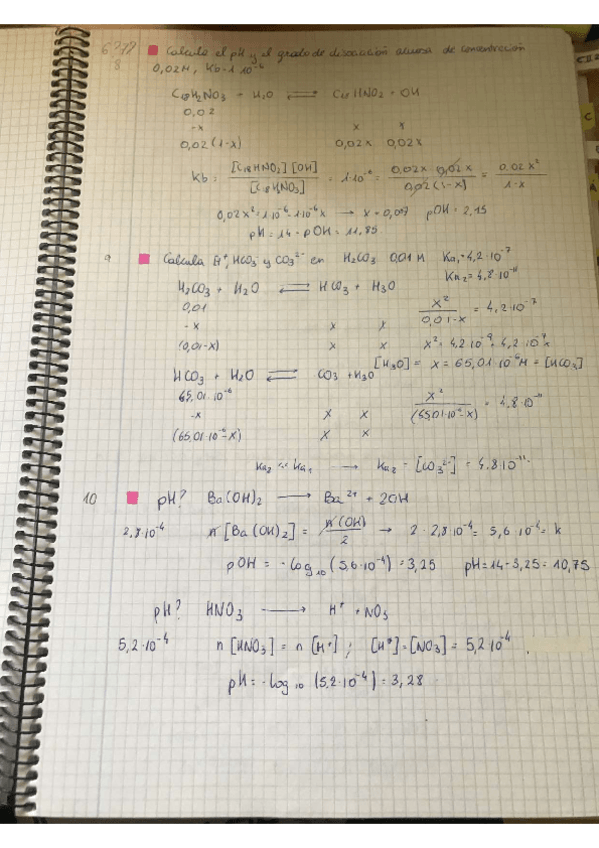 8 Calcula el pH y el grado de disociación acuosa de concentración
0,02M, Kb = 1·10⁻⁶
C₁₈H₂NO₃ + H₂O ⇌ C₁₈HNO₂ + OH
0,02
-x x x
0,02(1-x) 0,02x 0,02x
Kb = [C₁₈HNO₂][OH] / [C₁₈HNO₃] = 1·10⁻⁶ = 0,02x · 0,02x / 0,02(1-x) = 0,02x² / 1-x
0,02x² = 1·10⁻⁶ - 1·10⁻⁶x → x = 0,007 pOH = 2,15
pH = 14 - pOH = 11,85
9 Calcula H⁺, HCO₃ y CO₃²⁻ en H₂CO₃ 0,01M Ka₁ = 4,2·10⁻⁷
Ka₂ = 4,8·10⁻¹¹
H₂CO₃ + H₂O ⇌ HCO₃ + H₃O
0,01 x² / 0,01-x = 4,2·10⁻⁷
-x x x
(0,01-x) x x x² = 4,2·10⁻⁹ + 4,2·10⁻⁷
[H₃O] = x = 65,01·10⁻⁶M = [HCO₃]
HCO₃ + H₂O ⇌ CO₃ + H₃O
65,01·10⁻⁶ x² / (65,01·10⁻⁶-x) = 4,8·10⁻¹¹
-x x x
(65,01·10⁻⁶-x) x x
Ka₂ << Ka₁ → Ka₂ = [CO₃²⁻] = 4,8·10⁻¹¹
10 pH? Ba(OH)₂ → Ba²⁺ + 2OH
2,8·10⁻⁴ n[Ba(OH)₂] = n(OH) / 2 → 2 · 2,8·10⁻⁴ = 5,6·10⁻⁴ = k
pOH = -log₁₀(5,6·10⁻⁴) = 3,25 pH = 14 - 3,25 = 10,75
pH? HNO₃ → H⁺ + NO₃
5,2·10⁻⁴ n[HNO₃] = n[H⁺]; [H⁺] = [NO₃] = 5,2·10⁻⁴.
pH = -log₁₀(5,2·10⁻⁴) = 3,28